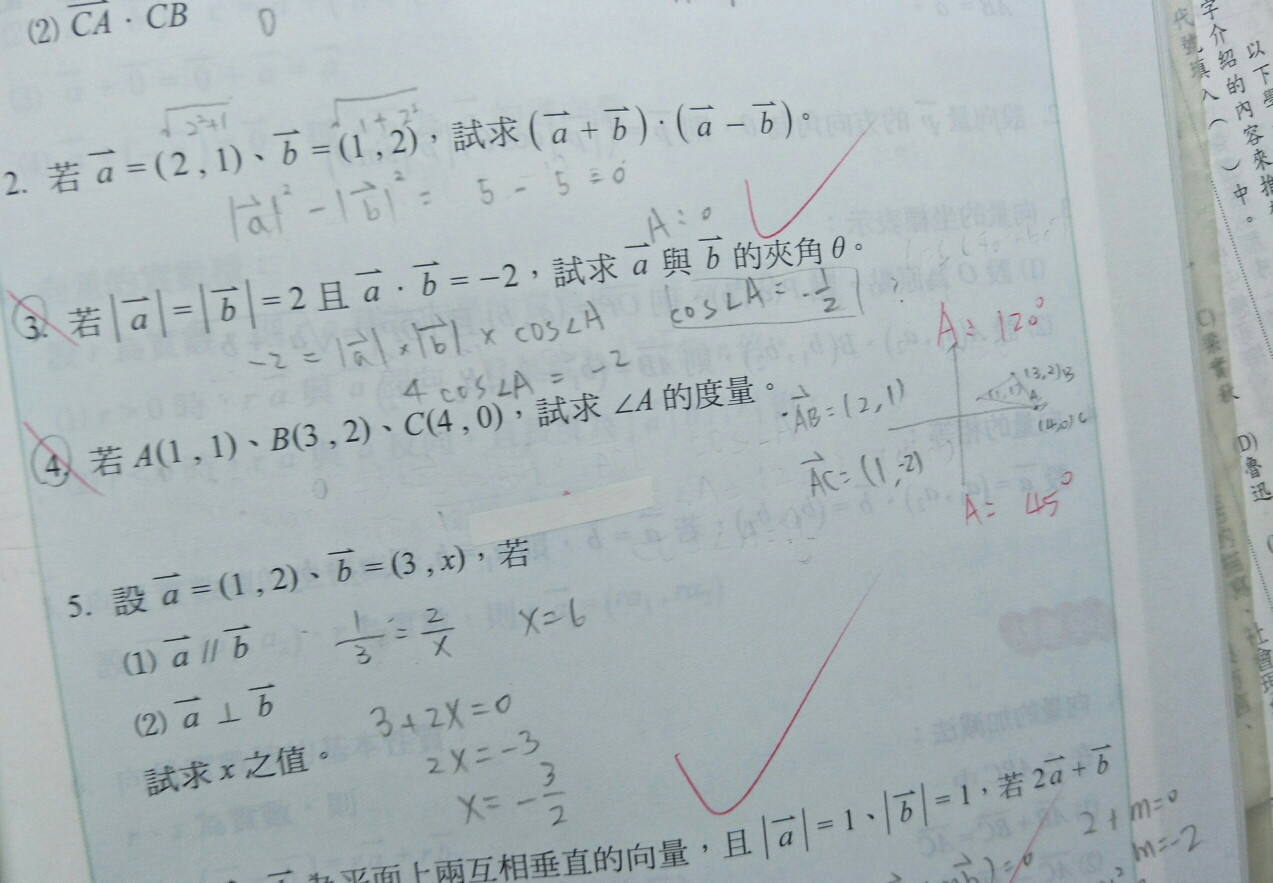 (2) CA · CB 0
√2²+1 √1+2²
2. 若 a = (2 , 1)、b = (1 , 2),試求 (a + b) · (a − b)。
|a|² − |b|² = 5 − 5 = 0
A : 0
3. 若 |a| = |b| = 2 且 a · b = −2,試求 a 與 b 的夾角 θ。
−2 = |a| × |b| × cos∠A cos∠A = −1/2 ? A = 120°
4 cos∠A = −2
4. 若 A(1 , 1)、B(3 , 2)、C(4 , 0),試求 ∠A 的度量。
AB = (2, 1) (3,2)B
AC = (1, −2) (4,0)C
A = 45°
5. 設 a = (1 , 2)、b = (3 , x),若
(1) a // b 1/3 = 2/x x = 6
(2) a ⊥ b 3 + 2x = 0
試求 x 之值。 2x = −3
x = −3/2
為平面上兩互相垂直的向量,且 |a| = 1、|b| = 1,若 2a + b
2 + m = 0
m = −2
字介紹的內容來
代號填入( )中。
以下
D) 魯迅